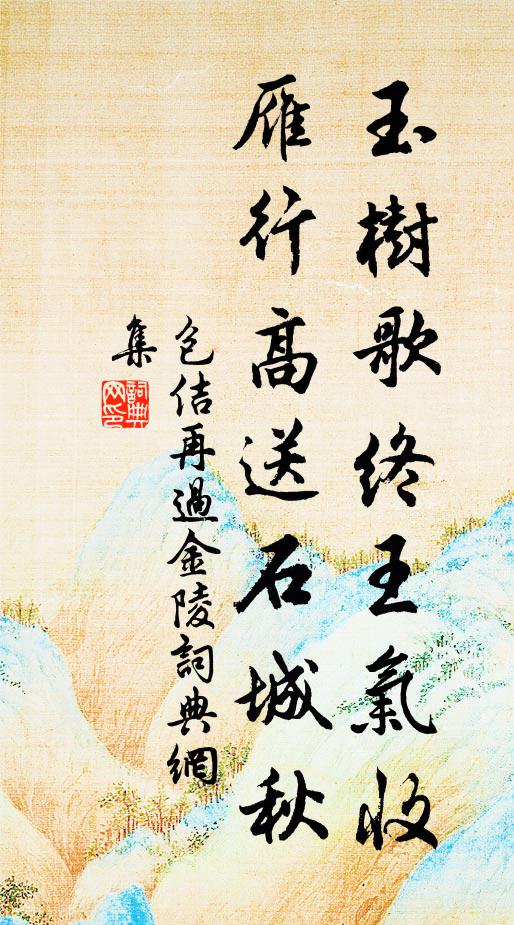 玉樹歌終王氣收
雁行高送石城秋
包佶再過金陵詞典網
集
詞典網印